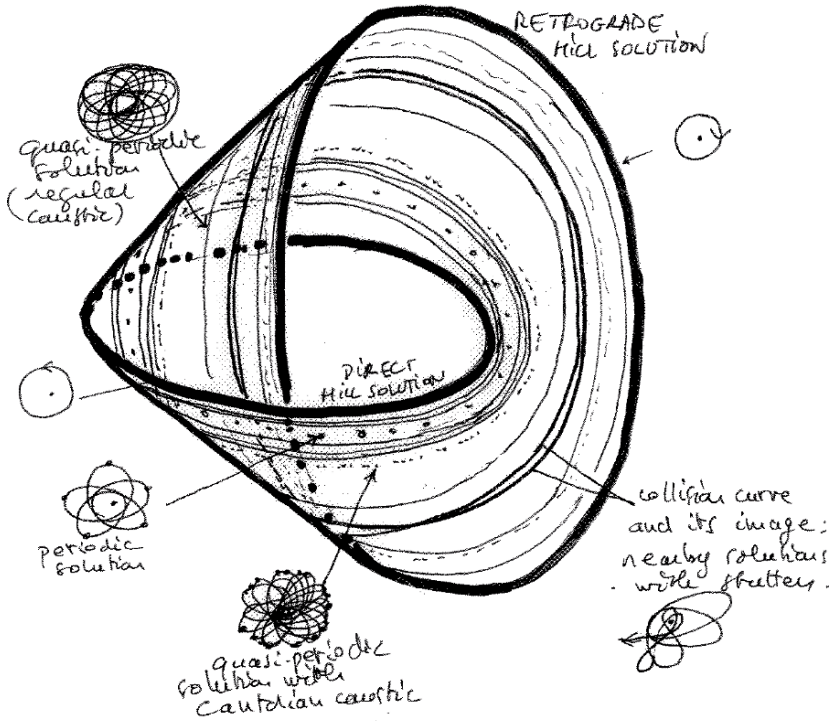 RETROGRADE
HILL SOLUTION
quasi-periodic
solution
(regular
caustic)
DIRECT
HILL SOLUTION
periodic
solution
collision curve
and its image;
nearby solutions
with
quasi-periodic
solution with
Cantorian caustic